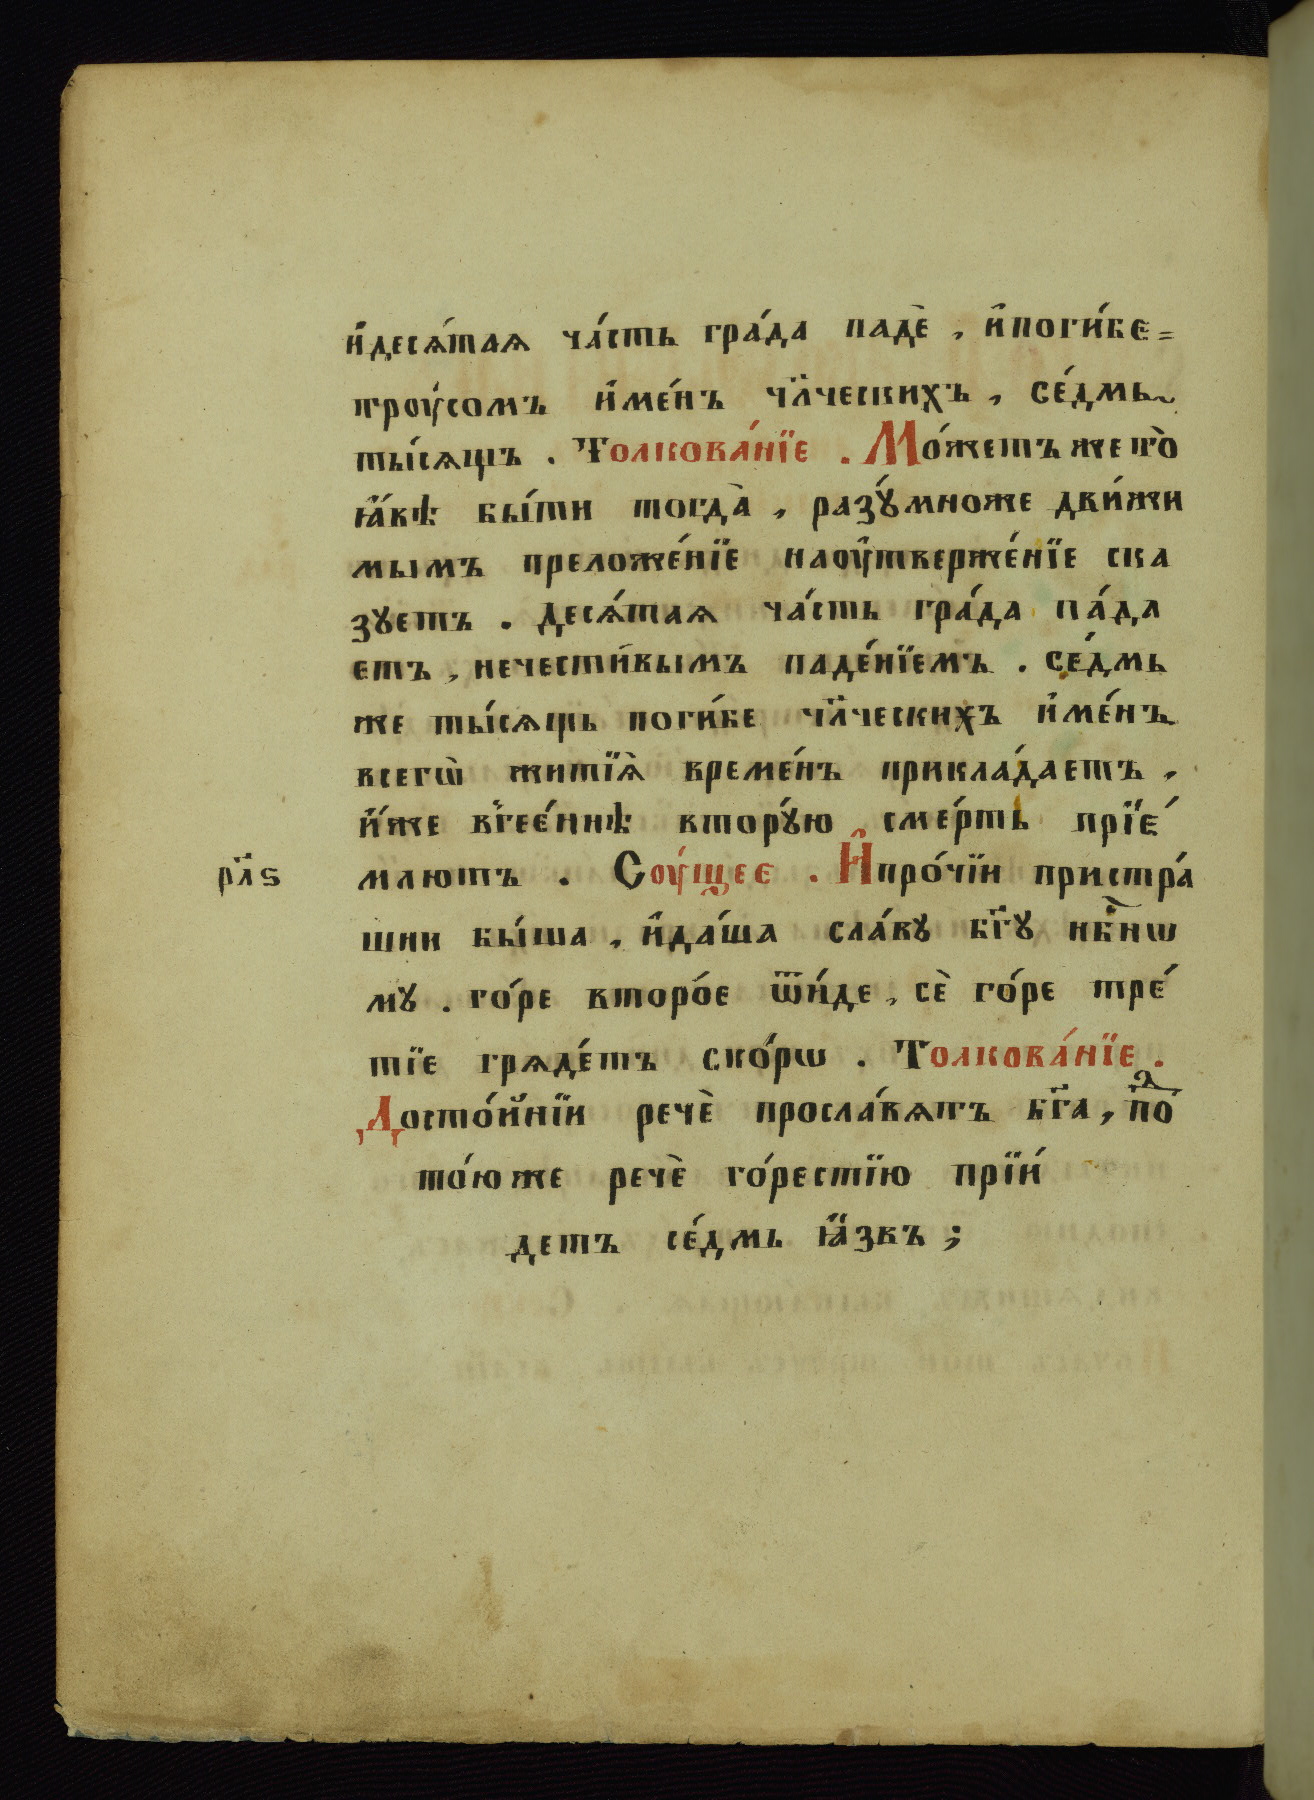 и҆десѧ́таѧ ча́сть гра́да падѐ , и҆поги́бе=
трꙋ́сомъ и҆ме́нъ чл҃ческихъ , се́дмь
ты́сѧщъ . Толкова́нїе . Мо́жетъ же то̀
ꙗ҆́вѣ бы́ти тогда̀ , разꙋ́множе дви́жи
мымъ преложе́нїе наоу҆твержє́нїе ска
зꙋетъ . десѧ́таѧ ча́сть гра́да па́да
етъ , нечести́вымъ паде́нїемъ . се́дмь
же ты́сѧщь поги́бе чл҃ческихъ и҆ме́нъ
всегѡ̀ житїѧ̀ време́нъ приклада́етъ ,
и҆́же вгее́ннѣ вторꙋ́ю сме́рть прїе́
млютъ . Соу́щее . И҆про́чїи пристра́
шни бы́ша , и҆да́ша сла́вꙋ бг҃ꙋ нб҃нѡ
мꙋ . го́ре второ́е ѿи́де , сѐ го́ре тре́
тїе грѧде́тъ ско́рѡ . Толкова́нїе .
Досто́йнїи речѐ просла́вѧтъ бг҃а , поⷣ
то́юже речѐ го́рестїю прїи́
детъ се́дмь ꙗ҆́звъ ;
рл҃ѕ